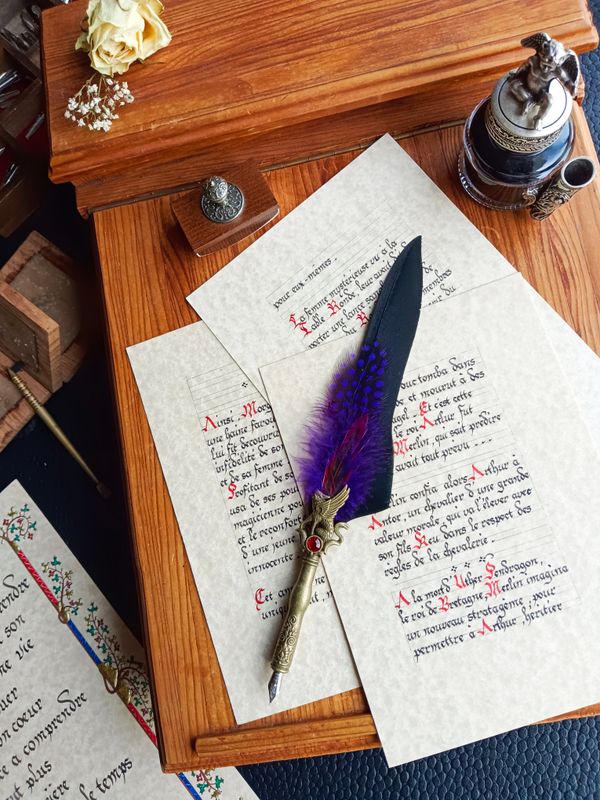 pour eux-mêmes..
La femme mystérieuse vu à la
Table Ronde, leur avait d'
porter une lance san
membres
du
du R
Ainsi Mor
une haine farou
lui fit découvri
infidélité de so
et de sa femme
Profitant de so
usa de ses pou
magicienne po
et le réconfor
d'une jeune
innocente
Cet am
uniqu
duc tomba dans
de et mourut à des
agel. Et c'est cette
le roi Arthur fut
Merlin, qui sait prédire
avait tout prévu ---
lin confia alors Arthur à
Antor, un chevalier d'une grande
valeur morale, qui va l'élever avec
son fils Keu dans le respect des
règles de la chevalerie.
A la mort d'Uther Pendragon,
le roi de Bretagne, Merlin imagina
un nouveau stratagème, pour
permettre à Arthur, héritier
endre
son
ne vie
uer
on coeur
e à comprendre
ut plus
ière
de le temps